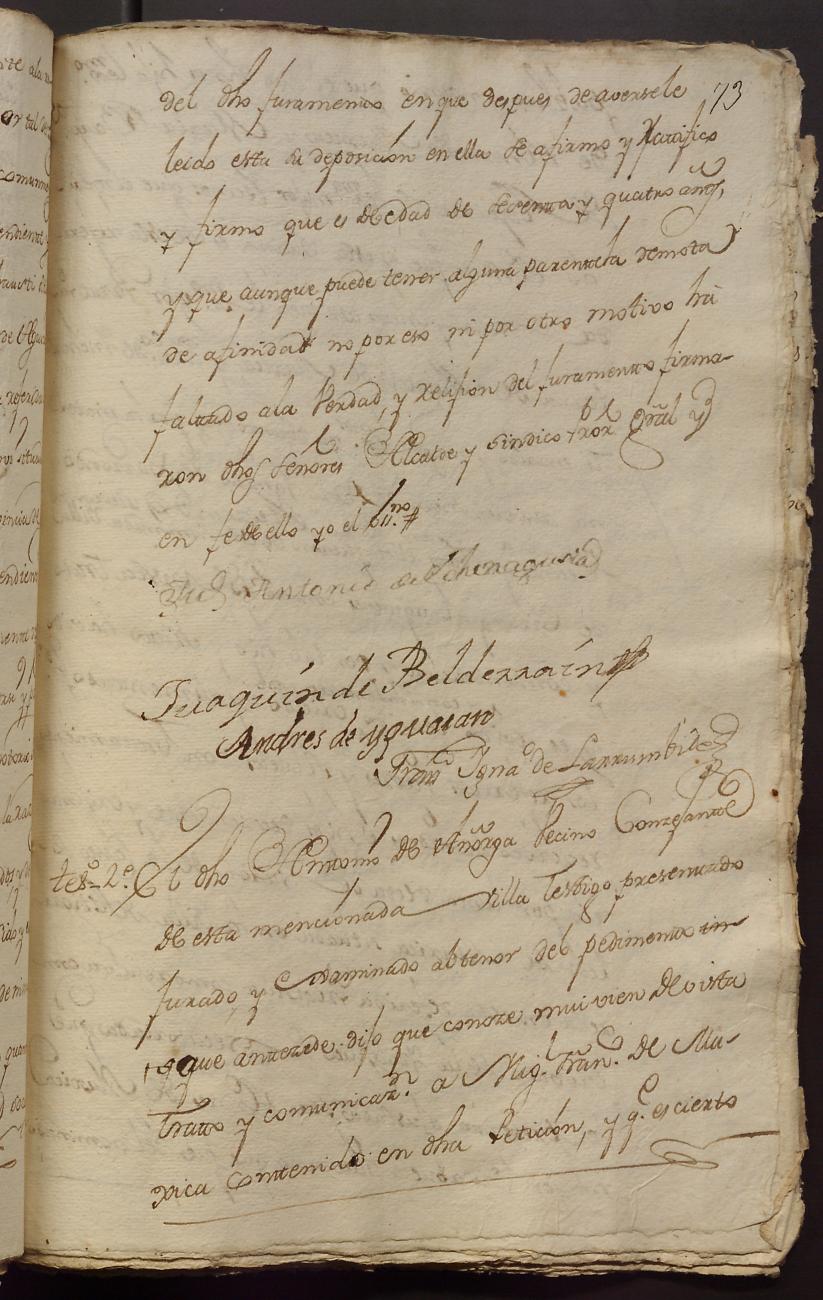 73
del dho juramento en que despues de aversele
leido esta su deposición en ella se afirmo y Ratifico
y firmo que es de edad de setenta y quatro años,
y que aunque puede tener alguna parentela remota
de afinidad no por eso ni por otro motivo ha
faltado a la Verdad, y Relijion del juramento firma-
ron dhos señores Alcalde y sindico pror gral y
en fe de ello yo el ssno
Antonio de
Juaquín de Belderrain
Andres de yguaran
Franco Ignao de Larrumbide
tesº 2º El dho Antonio de Añorga Vecino Conzejante
de esta mencionada Villa testigo presentado
jurado, y Examinado al tenor del pedimento in-
que antezede dijo que conoze mui vien de vista
Trato y comunicazn a Migl Franco de Mu-
xica Contenido en dha Petición, y q.e es cierto